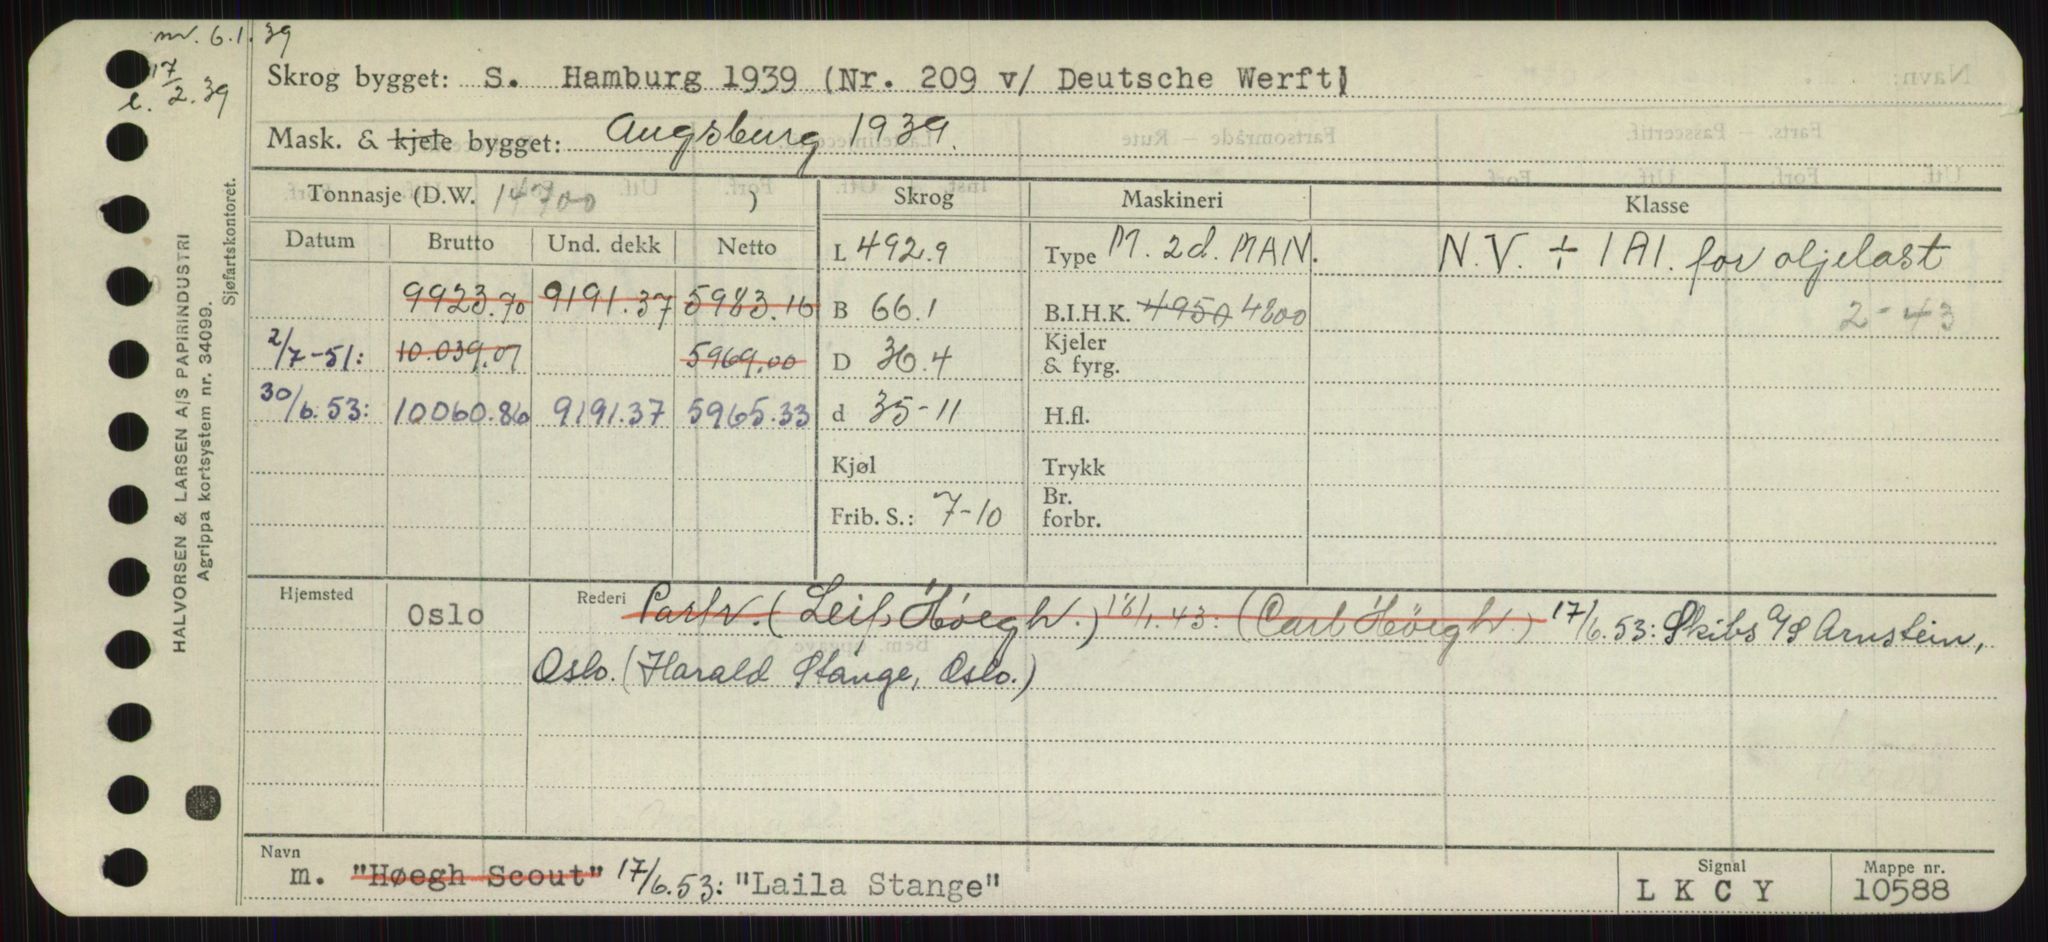 nv. 6.1.39
17/2.39
l.
Skrog bygget: S. Hamburg 1939 (Nr. 209 v/ Deutsche Werft)
Mask. & kjele bygget: Augsburg 1939.
Tonnasje (D.W. 14700 ) Skrog Maskineri Klasse
Datum Brutto Und. dekk Netto L 492.9 Type M. 2d. MAN. N.V. ÷ 1A1. for oljelast
9923.70 9191.37 5983.16 B 66.1 B.I.H.K. 4950 4800 2-43
2/7-51: 10.039.07 5969.00 D 36.4 Kjeler
& fyrg.
30/6.53: 10060.86 9191.37 5965.33 d 35-11 H.fl.
Kjøl Trykk
Frib. S.: 7-10 Br.
forbr.
Hjemsted Oslo Rederi Partr. (Leif Høegh.) 16/1.43: (Carl Høegh) 17/6.53: Skibs A/S Arnstein,
Oslo. (Harald Stange, Oslo.)
Navn Signal Mappe nr.
m. "Høegh Scout" 17/6.53: "Laila Stange" L K C Y 10588
HALVORSEN & LARSEN A/S PAPIRINDUSTRI
Agrippa kortsystem nr. 34099.
Sjøfartskontoret.